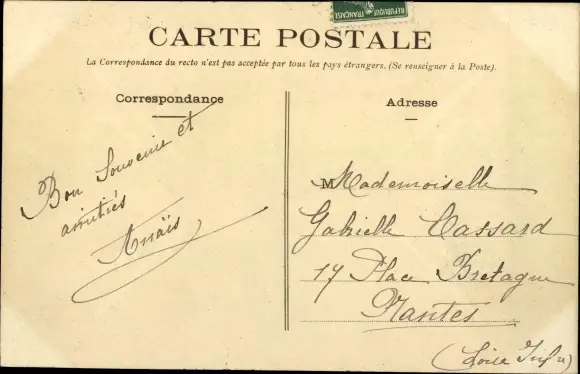 RÉPUBLIQUE
FRANÇAISE
CARTE POSTALE
La Correspondance du recto n'est pas acceptée par tous les pays étrangers. (Se renseigner à la Poste).
Correspondance
Adresse
Bon Souvenir et
amitiés
Anaïs
Mademoiselle
Gabrielle Cassard
17 Place Bretagne
Nantes
(Loire Infre)